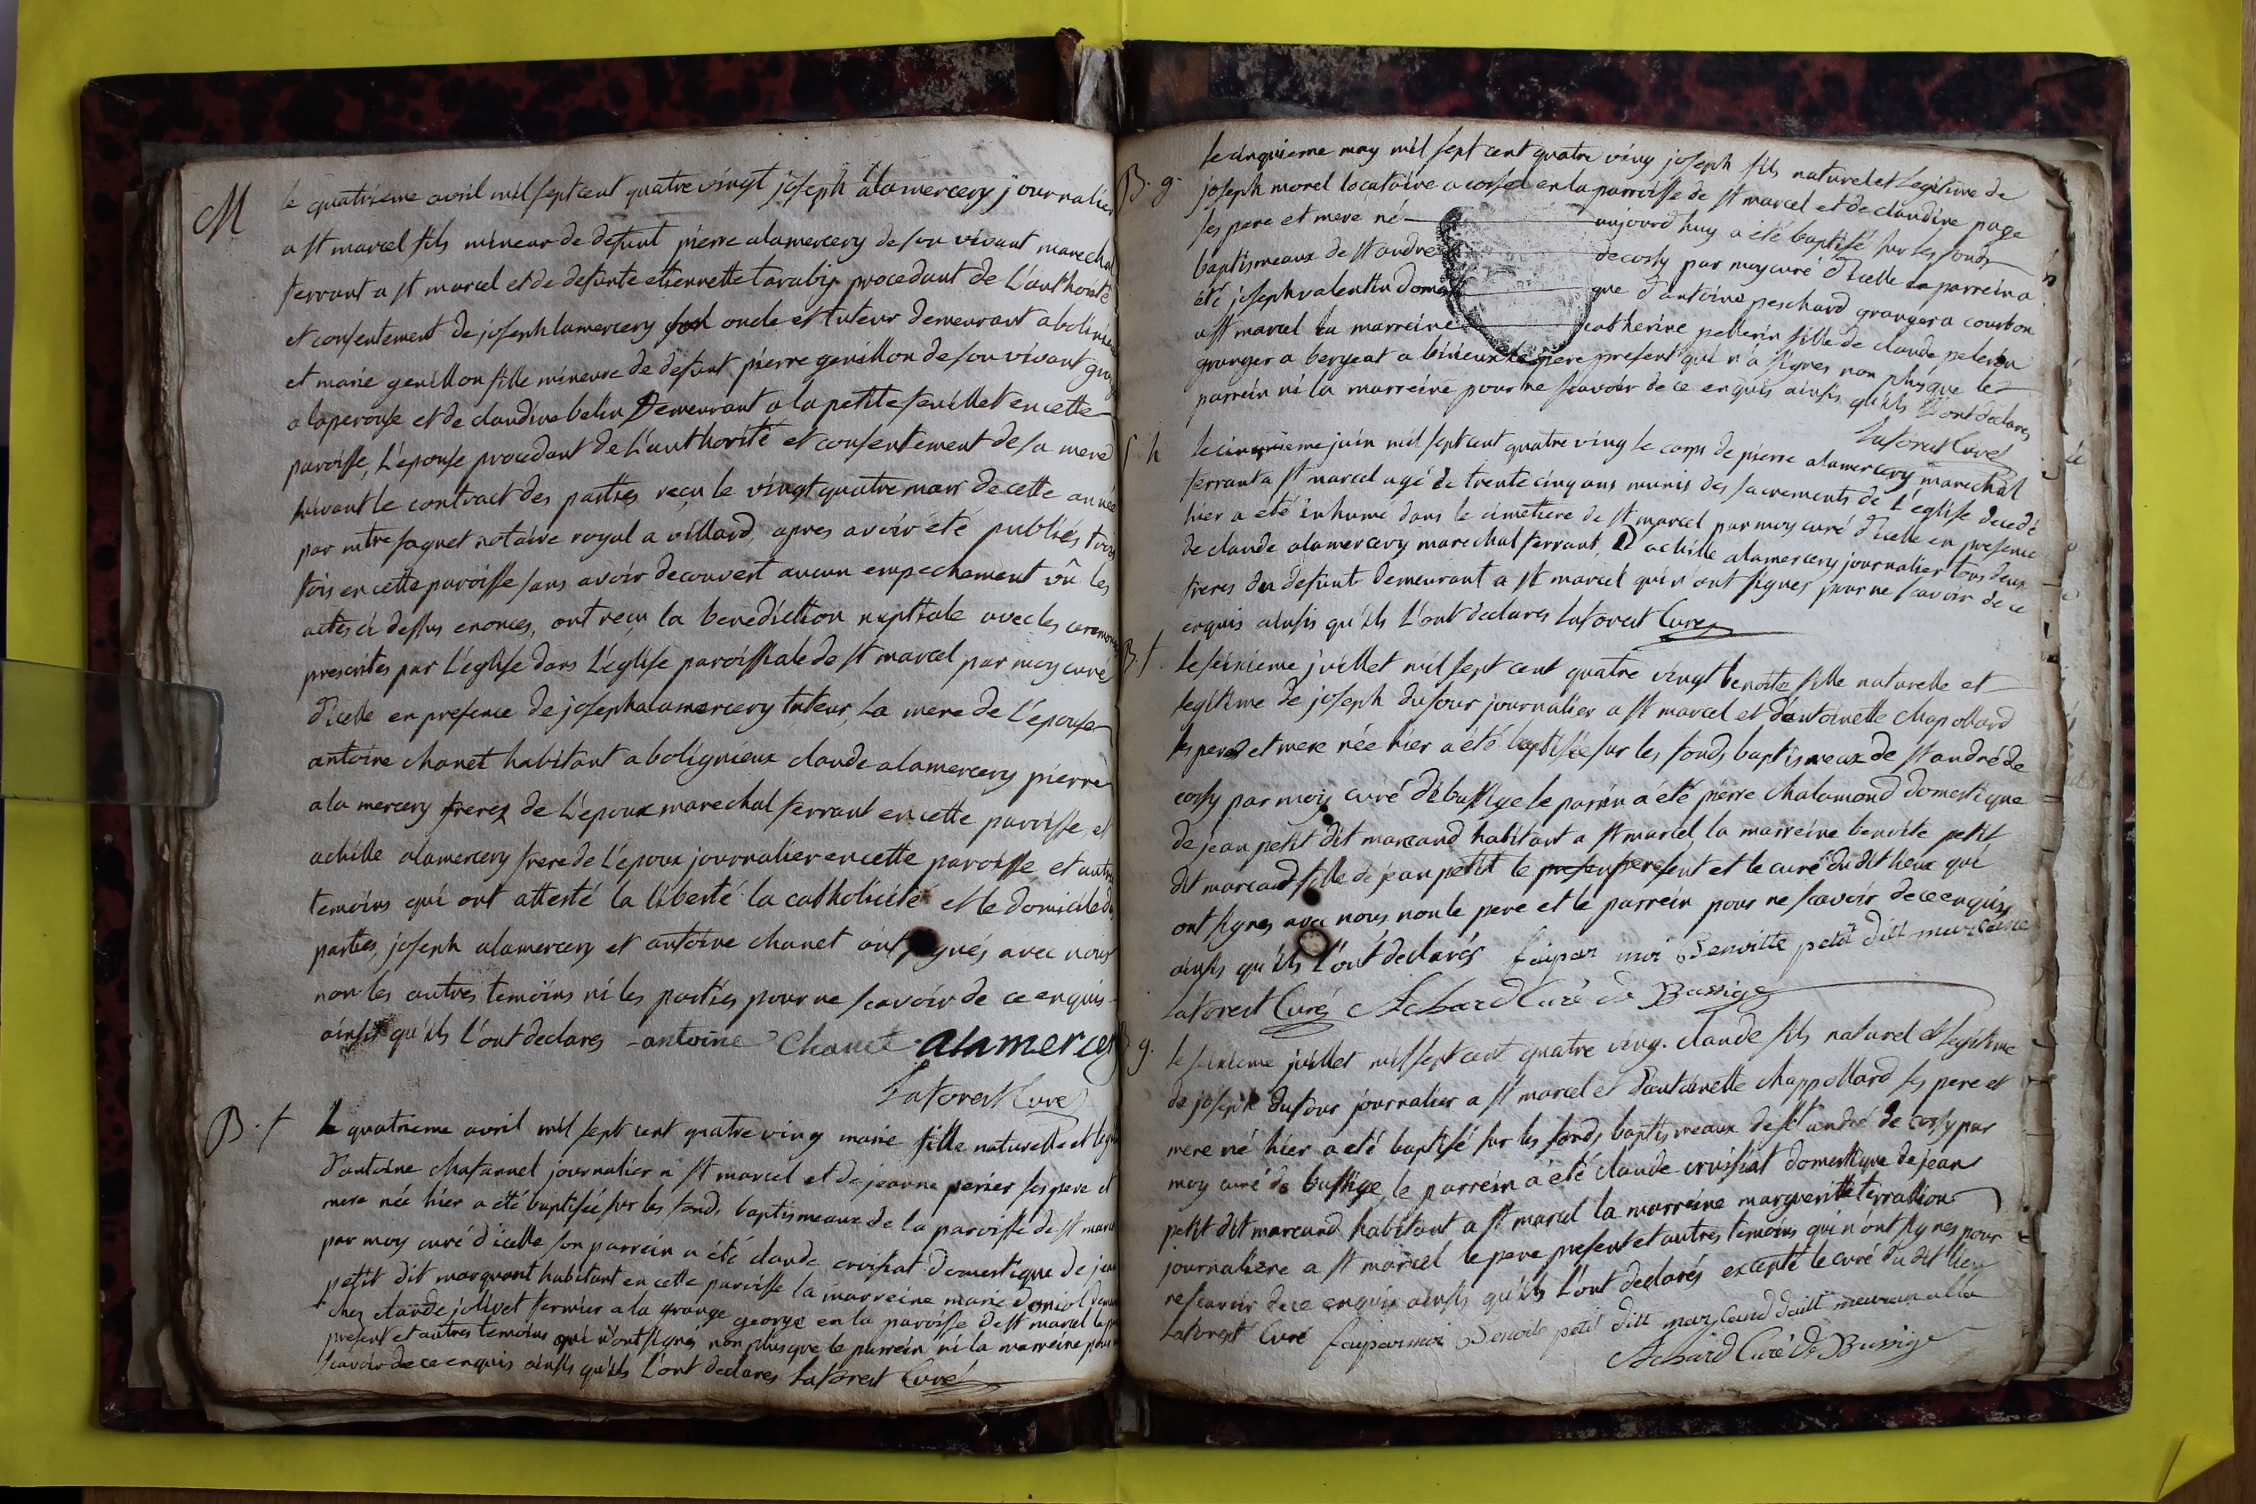 M
le quatrieme avril mil sept cent quatre vingt joseph alamercery journalier
a st marcel fils mineur de defunt pierre alamercery de son vivant marechal
ferrant a st marcel et de defunte etiennette tarabix procedant de L'authorité
et consentement de joseph lamercery son oncle et tuteur demeurant a
et marie genillon fille mineure de defunt pierre genillon de son vivant
a laperouse et de claudine belin Demeurant a la petite feuillet en cette
paroisse, L'epouse procedant de L'authorité et consentement de sa mere
suivant le contract des parties reçu le vingt quatre mars de cette année
par mtre saquet notaire royal a villard, apres avoir été publiés trois
fois en cette paroisse sans avoir decouvert aucun empechement vû les
actes ci dessus enonces, ont reçu la benediction nuptiale avec les
prescrites par L'eglise dans L'eglise paroissiale de st marcel par moy curé
d'icelle en presence de joseph alamercery tuteur, La mere de L'epouse
antoine chanet habitant a boligneux claude alamercery pierre
ala mercery freres de L'epoux marechal ferrant en cette paroisse, et
achille alamercery frere de L'epoux journalier en cette paroisse et autres
temoins qui ont attesté la liberté la catholicité et le domicile
parties, joseph alamercery et antoine chanet ont signés avec nous
non les autres temoins ni les parties pour ne scavoir de ce enquis
ainsis qu'ils L'ont declares antoine Chanet alamercery
Laforest Curé
B. f
Le quatrieme avril mil sept cent quatre ving marie fille naturelle et
d'antoine chafannel journalier a st marcel et de jeanne perier ses pere et
mere née hier a été baptisée sur les fonds baptismeaux de la paroisse de st
par moy curé d'icelle son parrein a été claude croisiat domestique de
petit dit marquant habitant en cette paroisse la marreine marie
chez claude jolivet fermier a la grange george en la paroisse de st marcel
present et autres temoins qui n'ont signés non plus que le parrein ni la marreine pour
scavoir de ce enquis ainsis qu'ils L'ont declares Laforest Curé
B. g.
le cinquieme may mil sept cent quatre ving joseph fils naturel et legitime de
joseph morel locataire a en la parroisse de st marcel et de claudine page
ses pere et mere né aujourd'huy a été baptisé sur les fonds
baptismeaux de st andre de corsy par moy curé d'icelle parrein a
été joseph valentin que d'antoine peschard granger a courbon
a st marcel La marreine catherine pellerin fille de claude pelerin
granger a bergeat a birieux le pere present qui n'a signes non plus que le
parrein ni la marreine pour ne scavoir de ce enquis ainsis qu'ils L'ont declares
Laforest Curé
S. h
le cinquieme juin mil sept cent quatre ving le corps de pierre alamercery marechal
ferrant a st marcel agé de trente cinq ans munis des sacrements de L'eglise decedé
hier a été inhumé dans le cimetiere de st marcel par moy curé d'icelle en presence
de claude alamercery marechal ferrant, D'achille alamercery journalier tous deux
freres du defunt demeurant a st marcel qui n'ont signes pour ne scavoir de ce
enquis ainsis qu'ils L'ont declares Laforest Curé
B. f.
le seizieme juillet mil sept cent quatre vingt benoite fille naturelle et
legitime de joseph dufour journalier a st marcel et d'antoinette chapollard
ses pere et mere née hier a été baptisée sur les fonds baptismeaux de st andré de
corsy par moy curé de bussige le parein a été pierre chalamond domestique
de jean petit dit marcand habitant a st marcel la marreine benoite petit
dit marcand fille de jean petit le pere present et le curé du dit lieux qui
ont signes avec nous non le pere et le parrein pour ne scavoir de ce enquis
ainsis qu'ils L'ont declarés par moi Benoitte petit ditt
Laforest Curé Achard Curé de Bussige
g.
le seizieme juillet mil sept cent quatre ving. claude fils naturel et legitime
de joseph dufour journalier a st marcel et d'antoinette chappollard ses pere et
mere né hier a été baptisé sur les fonds baptismeaux de st andré de corsy par
moy curé de bussige, le parrein a été claude croisiat domestique de jean
petit dit marcand habitant a st marcel la marreine marguerite terrallion
journaliere a st marcel le pere present et autres temoins qui n'ont signes pour
ne scavoir de ce enquis ainsis qu'ils L'ont declarés excepté le curé du dit lieu
Laforest Curé par moi Benoite petit ditt
Achard Curé De Bussige